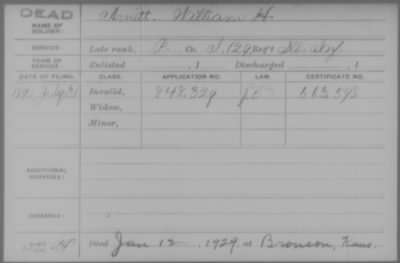 DEAD
NAME OF SOLDIER: Arnett, William H.
SERVICE: Late rank, P. Co. I, 129 Reg't Ill. Inf.
TERM OF SERVICE: Enlisted , 1 Discharged , 1
DATE OF FILING. CLASS. APPLICATION NO. LAW. CERTIFICATE NO.
July 31 Invalid, 848.329 663.598
Widow,
Minor,
ADDITIONAL SERVICES:
REMARKS:
Died Jan 12, 1929, at Bronson, Kans.